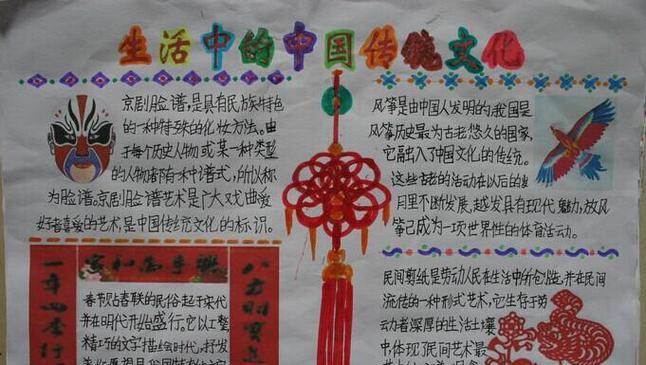 生活中的中国传统文化
京剧脸谱,是具有民族特色
的一种特殊的化妆方法。由
于每个历史人物或某一种类型
的人物都有一种谱式,所以称
为脸谱。京剧脸谱艺术是广大戏曲爱
好者喜爱的艺术,是中国传统文化的标识。
风筝是由中国人发明的,我国是
风筝历史最为古老悠久的国家,
它融入了中国文化的传统。
这些古老的活动在以后的岁
月里不断发展,越发具有现代魅力,放风
筝已成为一项世界性的体育活动。
家和万事兴
一年四季行
八方财宝进
春节贴春联的民俗起于宋代
并在明代开始盛行。它以工整
精巧的文字描绘时代,抒发
民间剪纸是劳动人民在生活中所创造,并在民间
流传的一种形式艺术,它生存于劳
动者深厚的生活土壤
中体现了民间艺术最